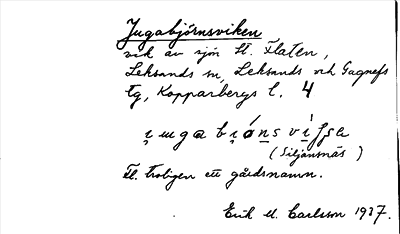 Jugabjörnsviken
vik av sjön St. Flaten,
Leksands sn, Leksands och Gagnefs
tg, Kopparbergs l. 4
(Siljansnäs)
F.l. troligen ett gårdsnamn.
Erik M. Carlsson 1937.